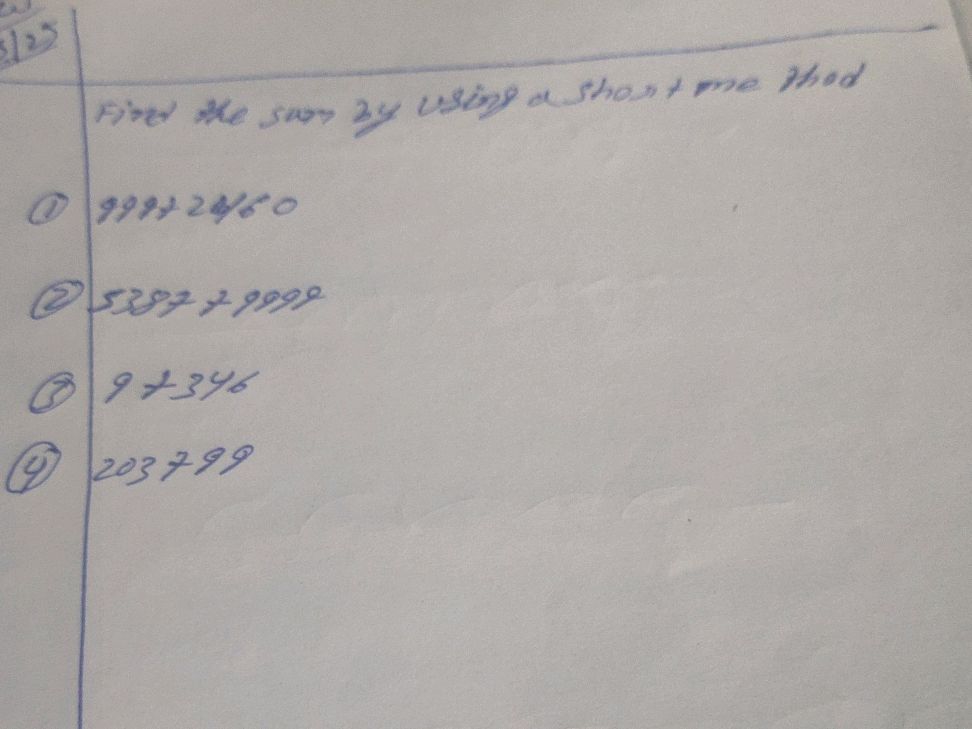 Find the sum by using a short me thod
① 999+2460
② 5387+9999
③ 9+346
④ 203+99